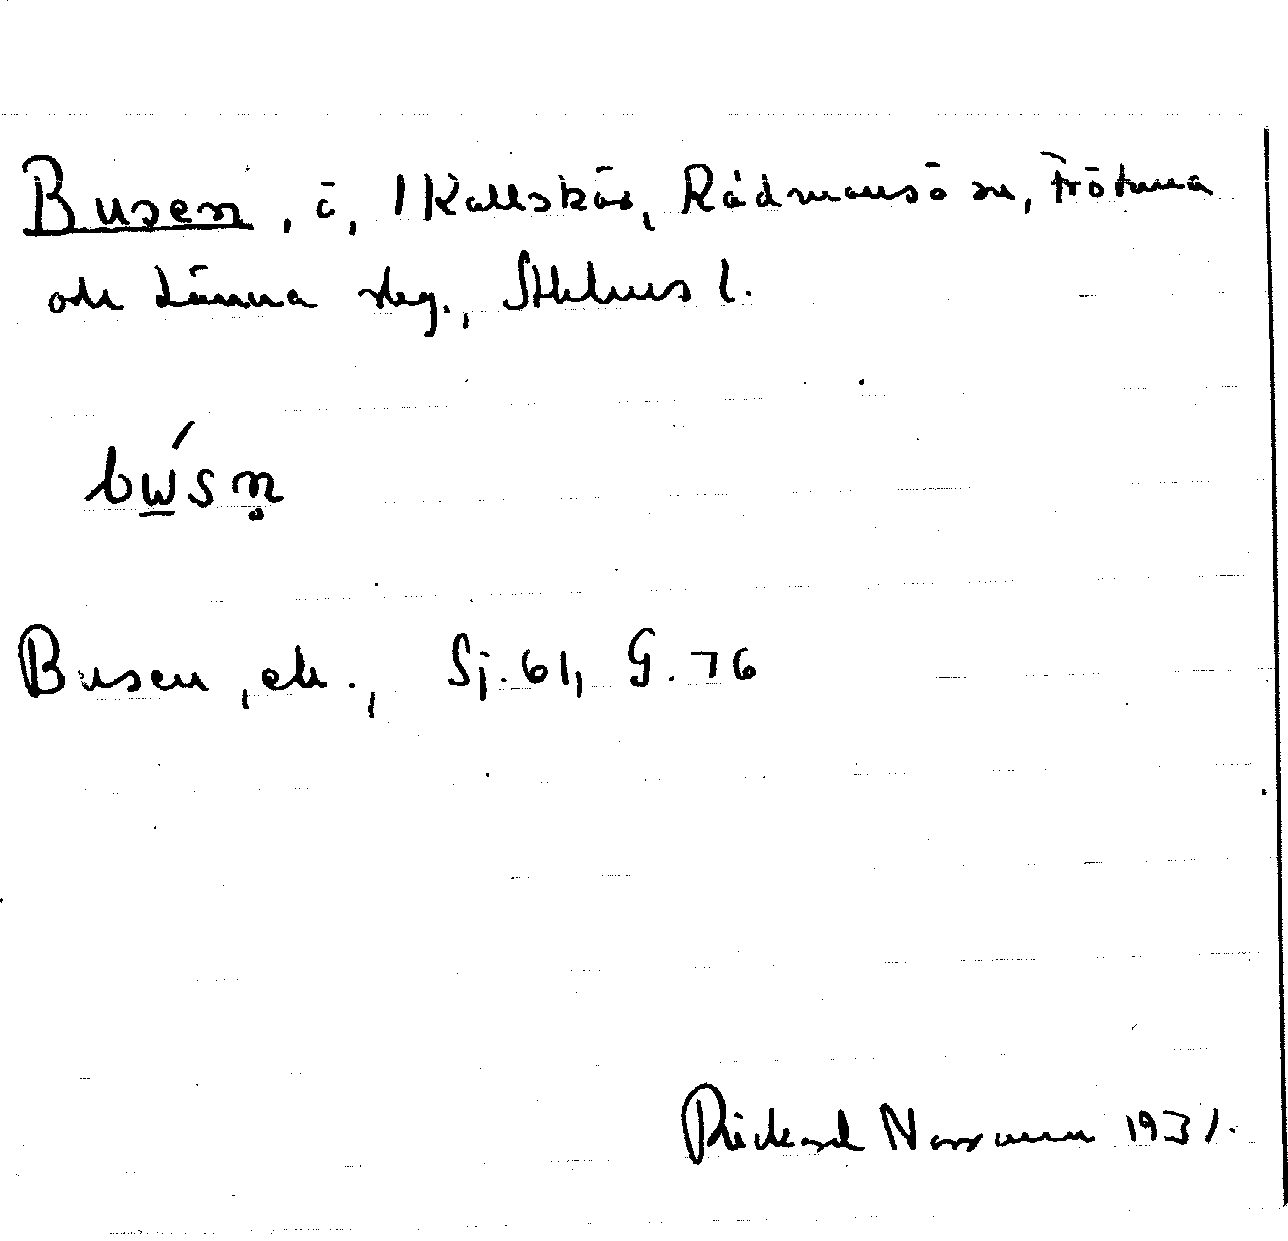 Busen, ö, 1 Kallskär, Rådmansö sn, Frötuna
och Länna skg., Sthlms l.
bu̲´sn̥
Busen, ek., Sj. 61, G. 76
Rickard 1931.